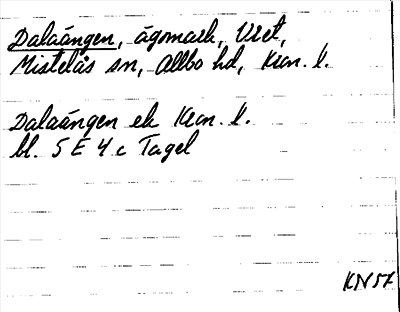 Dalaängen, ägomark, Vret,
Mistelås sn, Allbo hd, Kron. l.
Dalaängen ek Kron. l.
bl. 5 E 4 c Tagel
KN57